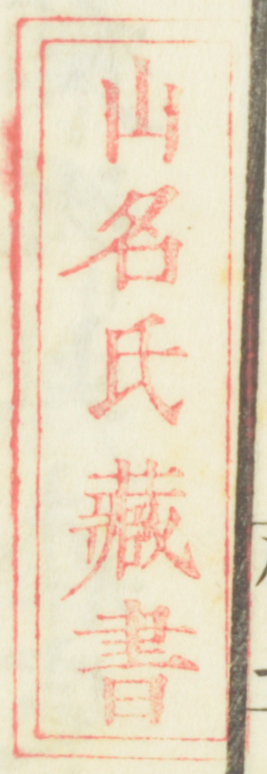 山名氏藏書